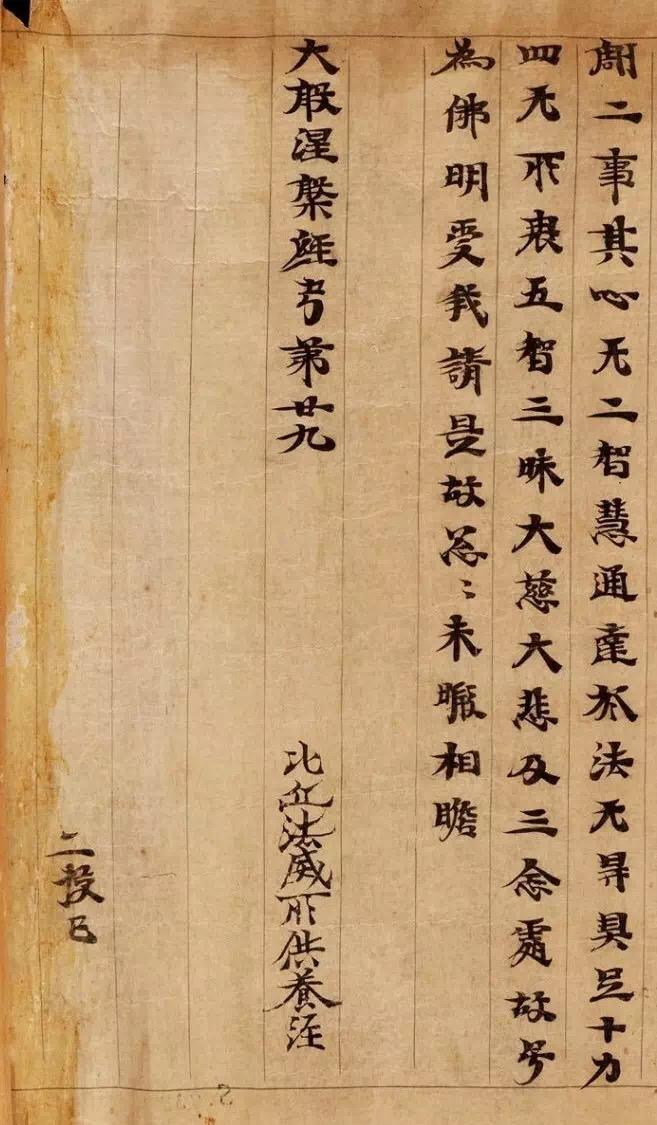 二事其心无二智慧通達於法无㝵具足十力
四无所畏五智三昧大慈大悲及三念處故号
為佛明受我請是故怱〻未暇相瞻
大般涅槃經卷第廿九
比丘法威所供養經
二校已